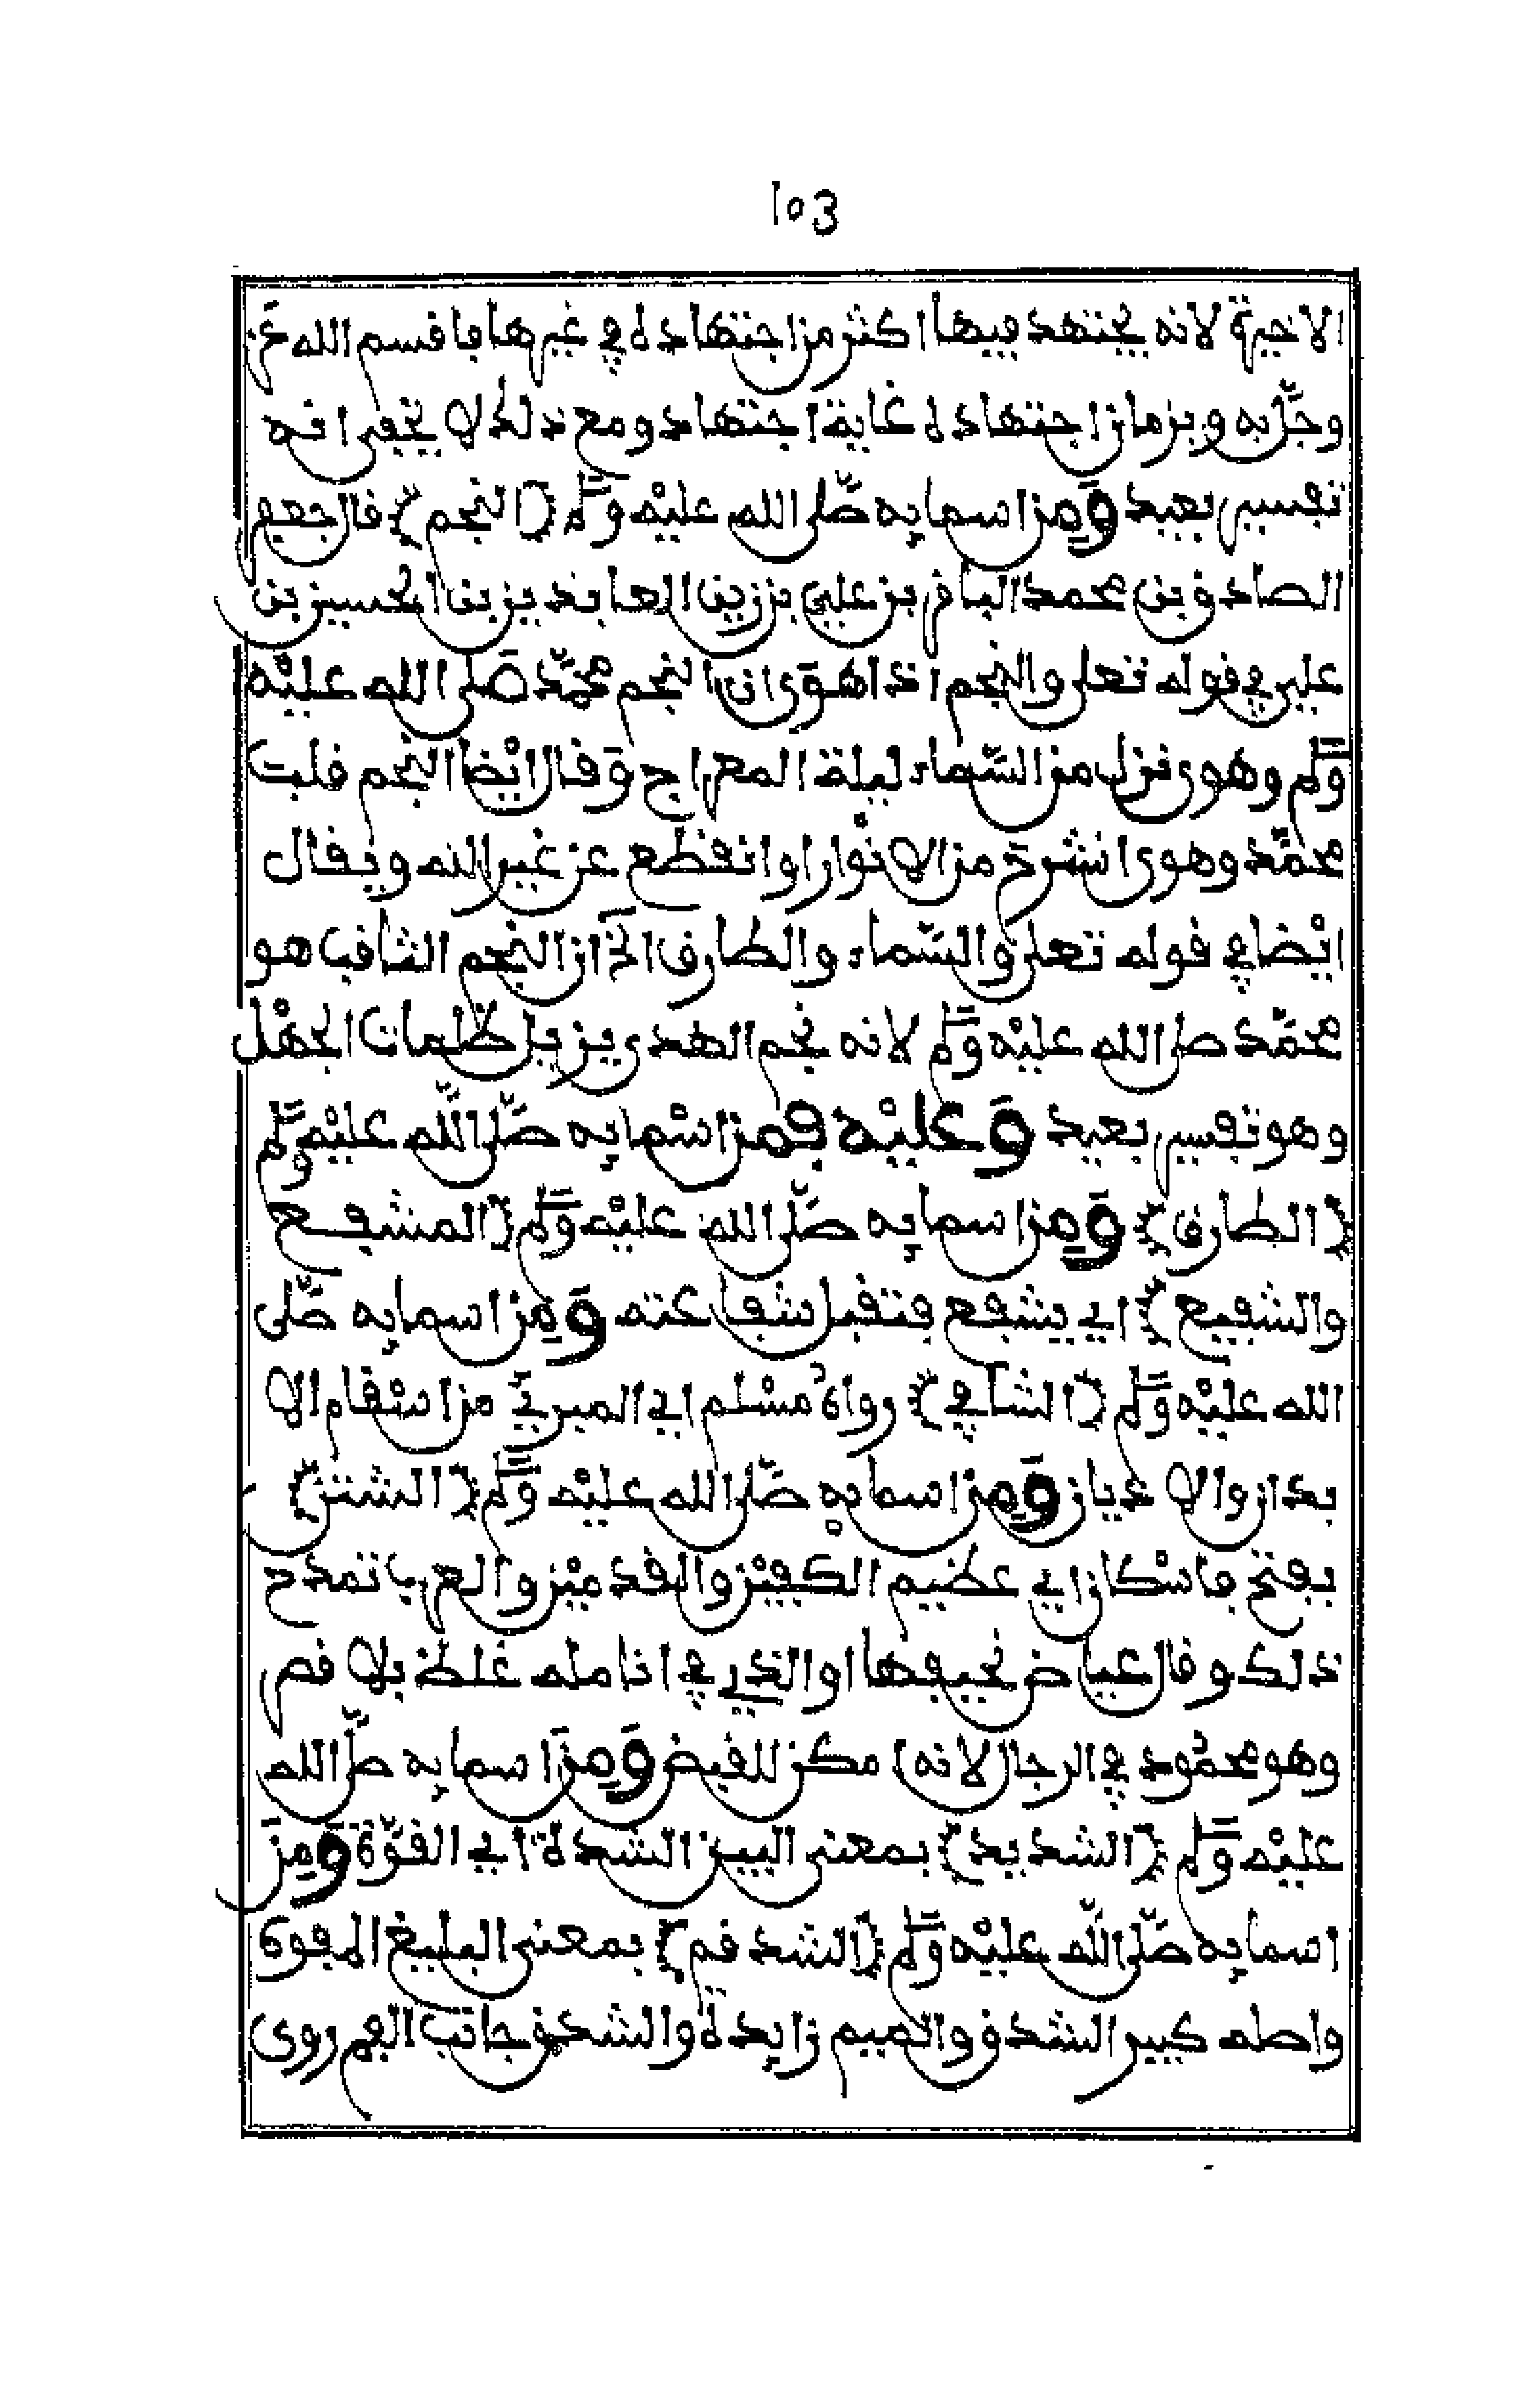 103
الاخيرة لانه يجتهد فيها اكثر من اجتهاده في غيرها فاقسم الله عز
وجل به وبزمان اجتهاده غاية اجتهاد ومع ذلك لا يخفى انه
تفسير بعيد وَمِن اسمايه صَلى الله عليْه وَسَلم (النجم) قال جعفر
الصادق بن محمد الباقر بن علي بن زين العابدين بن الحسين بن
علي في قوله تعلى والنجم اذا هَوى ان النجم محمّد صَلى الله عليْه
وَسَلم وهوى نزل من السّماء ليلة المعراج وَقال ايْضا النجم قلب
محمّد وهوى انشرحَ من الانْوار او انقطع عن غير الله ويقال
ايْضا في قوله تعلى وَالسّماء والطارق الخ ان النجم الثاقب هو
محمّد صلى الله عليْه وَسَلم لانه نجم الهدى يزيل ظلمات الجهْل
وهو تفسير بعيد وَعليْه فمن اسْمايه صَلّى اللّه عليْه وَسَلم
(الطارق) وَمِن اسمايه صَلّى الله عليْه وَسَلم (المشفع
والشفيع) اي يشفع فتقبل شفاعته وَمِن اسمايه صَلّى
الله عليْه وَسَلم (الشافي) رواهُ مسْلم اي المبرئ من اسْقام الا
بدان والاديان وَمِن اسمايه صَلّى الله عليْه وَسَلم (الشثن)
بفتح فاسْكان اي عظيم الكفيْن والقدميْن والعرب تمدح
ذلك وقال عياض نحيفها او الذي في انامله غلظ بلا قصر
وهو محمُود في الرجال لانه امكن للقبض وَمِنَ اسمايه صلّى الله
عليْه وَسَلم (الشديد) بمعنى البين الشدة اي القوّة وَمِنَ
اسمايه صَلّى اللّه عليْه وَسَلم (الشدقم) بمعنى البليغ المفوه
واصله كبير الشدق والميم زايدة والشدق جانب الفم روى